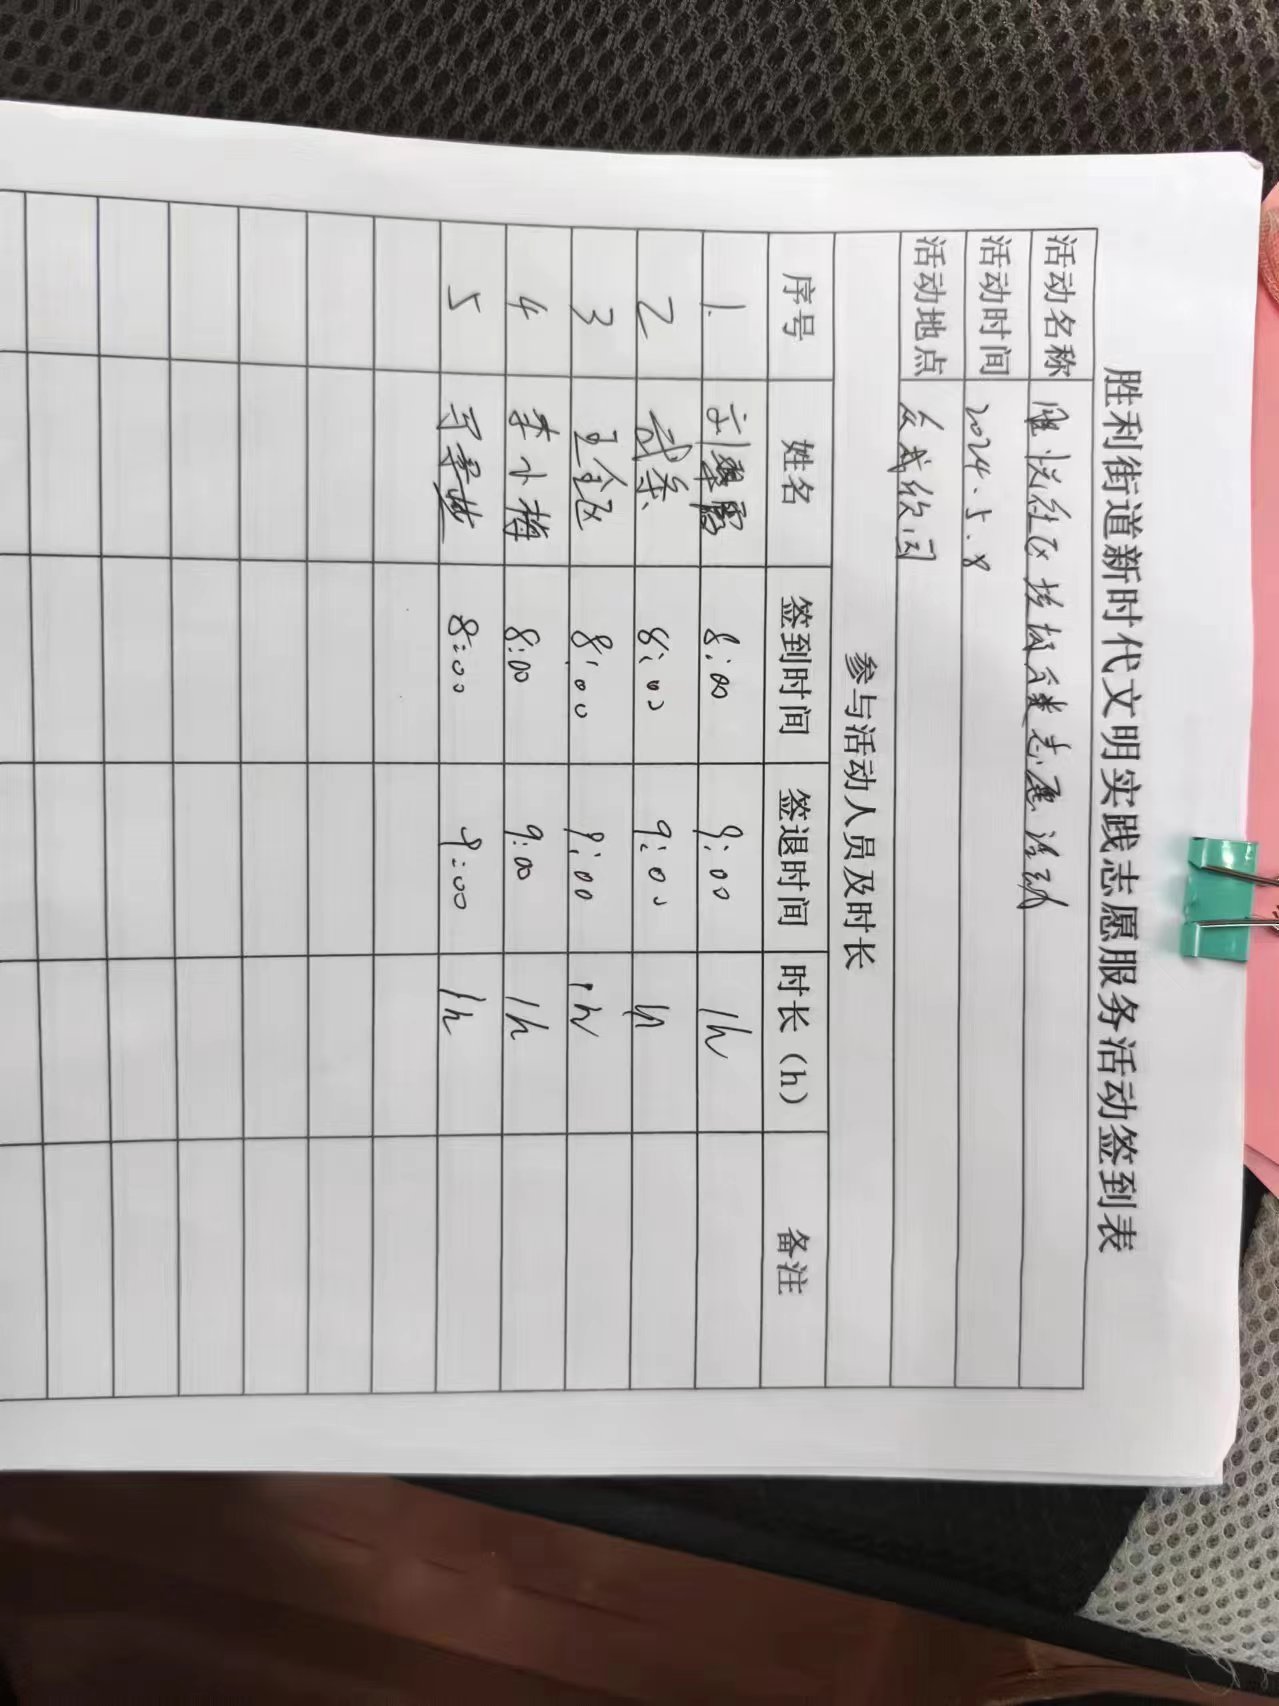 胜利街道新时代文明实践志愿服务活动签到表
活动名称 社区垃圾分类志愿活动
活动时间 2024.5.8
活动地点 众成欣园
参与活动人员及时长
序号 姓名 签到时间 签退时间 时长（h） 备注
1. 刘翠霞 8:00 9:00 1h
2 武桑 8:00 9:00 1h
3 8:00 9:00 1h
4 李小梅 8:00 9:00 1h
5 8:00 9:00 1h